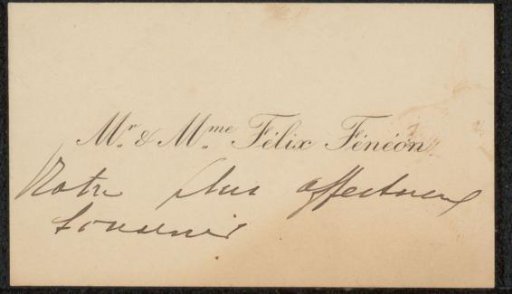 Mr. & Mme. Félix Fénéon
Notre plus affectueux
souvenir